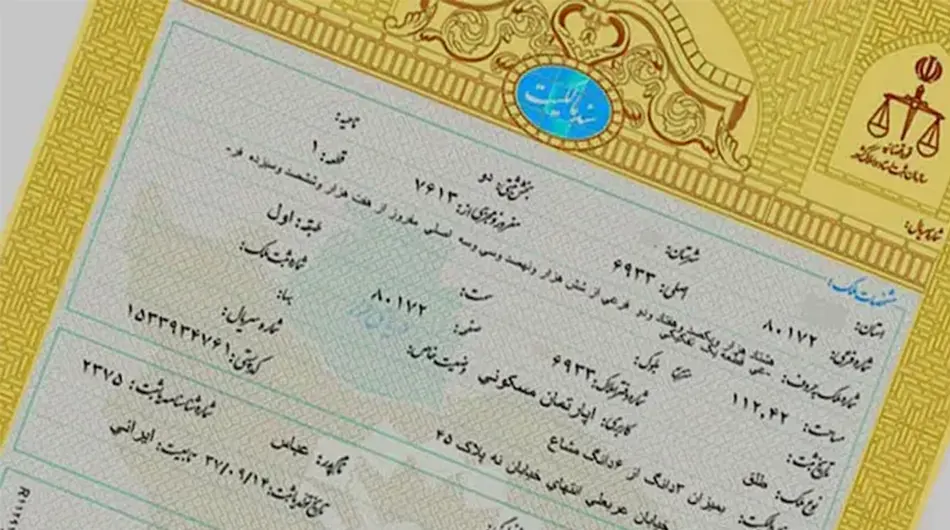 سند مالکیت
قوه قضائیه
سازمان ثبت اسناد و املاک کشور
شماره سریال:
مشخصات ملک:
استان: شهرستان: بخش ثبتی: دو ناحیه:
شماره فرعی: ۸۰۱۷۲ اصلی: ۶۹۳۳ مفروز و مجزی از: ۷۶۱۳ قطعه: ۱
شماره ملک بحروف: هشتاد هزار و یکصد و هفتاد و دو فرعی از شش هزار و نهصد و سی و سه اصلی مفروز از هفت هزار و ششصد و سیزده فر-
-عی قطعه یک تفکیکی
مساحت: ۱۱۲.۴۲ بلوک: سمت: طبقه: اول
تاریخ ثبت: شماره دفتر املاک: ۶۹۳۳ صفحه: ۸۰۱۷۲ شماره ثبت ملک:
نوع ملک: طلق کاربری: آپارتمان مسکونی وضعیت خاص: بها:
بمیزان ۳دانگ از ۶دانگ مشاع شماره سریال:
خیابان عریضی انتهای خیابان نه پلاک ۴۵ کد پستی: ۱۵۳۳۹۳۴۷۶۱
عباس شماره شناسنامه یا ثبت: ۲۳۷۵
تاریخ تولد یا ثبت: ۳۷/۰۹/۱۴ تابعیت: ایرانی